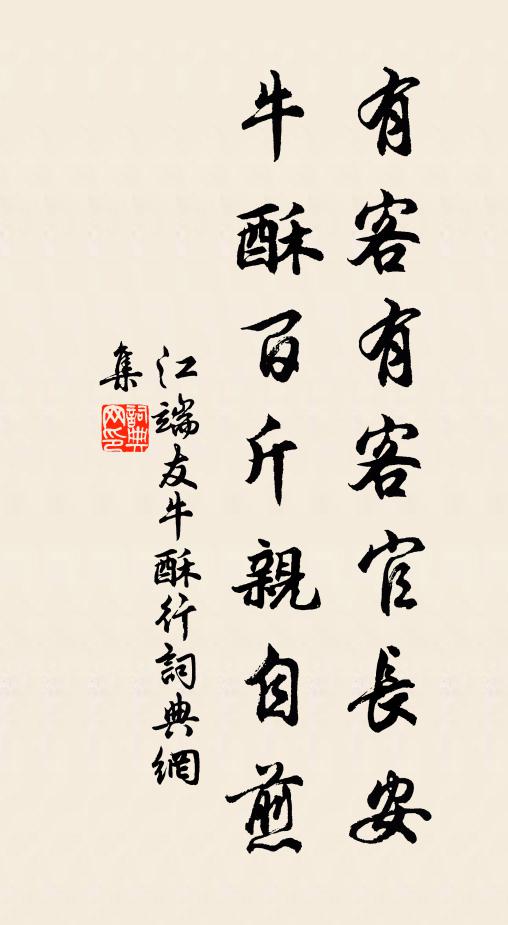 有客有客官長安
牛酥百斤親自煎
江端友牛酥行詞典網
集
詞典网印